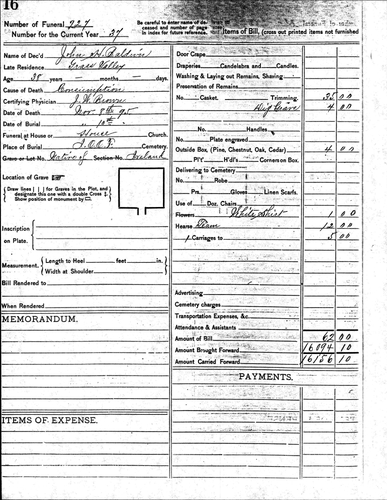 16
Number of Funeral 227
Number for the Current Year 37
Be careful to enter name of deceased and number of page in index for future reference.
Items of Bill, (cross out printed items not furnished
Name of Dec'd John H Baldwin
Late Residence Grass Valley
Age, 38 years - months - days.
Cause of Death Consumption
Certifying Physician J. W. Brown
Date of Death Nov. 8th 95
Date of Burial 10th
Funeral at House or House Church.
Place of Burial I.O.O.F. Cemetery.
Grave or Lot No. Native of Section No. Ireland
Location of Grave
Draw lines for Graves in the Plot, and designate this one with a double Cross
Show position of monument by
Inscription on Plate.
Measurement. Length to Heel feet in.
Width at Shoulder
Bill Rendered to
When Rendered
MEMORANDUM.
ITEMS OF EXPENSE.
Door Crape
Draperies Candelabra and Candles.
Washing & Laying out Remains, Shaving
Preservation of Remains
No. Casket. Trimming. 35 00
Dig Grave 4 00
No. Handles.
Plate engraved
Outside Box (Pine, Chestnut, Oak, Cedar) 4 00
Pl't H'd's Corners on Box.
Delivering to Cemetery
No. Robe
Prs. Gloves Linen Scarfs.
Use of Doz. Chairs
Flowers White Shirt 1 00
Hearse Team 12 00
1 Carriages to 5 00
Advertising
Cemetery charges
Transportation Expenses, &c.
Attendance & Assistants
Amount of Bill 62 00
Amount Brought Forward 16094 10
Amount Carried Forward 16156 10
PAYMENTS.